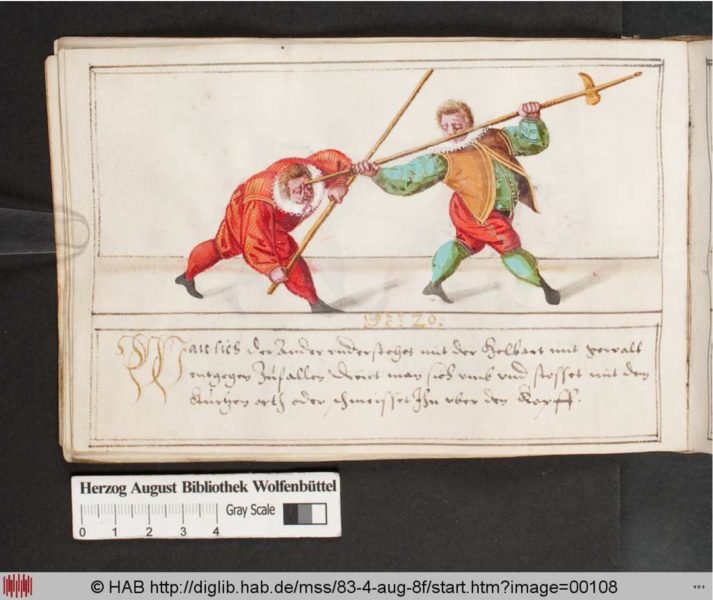 N:o: 20.
Wan sich der Ander understehet mit der Helbart mit gewalt
entgegen Zufallen dreiet man sich umb und stosset mit den
Kurtzen orth oder schmeisset Ihn uber den Kopff.
Herzog August Bibliothek Wolfenbüttel
Gray Scale
0 1 2 3 4
© HAB http://diglib.hab.de/mss/83-4-aug-8f/start.htm?image=00108